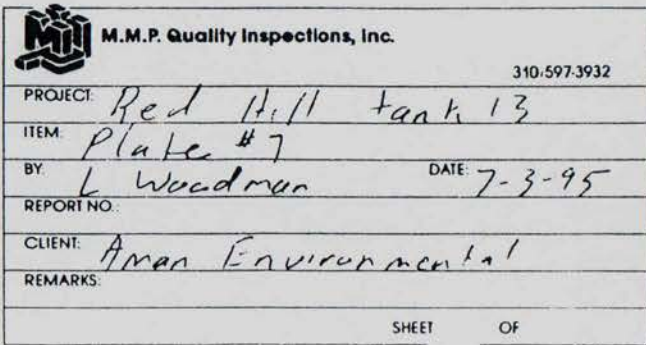 M.M.P. Quality Inspections, Inc.
310-597-3932
PROJECT: Red Hill tank 13
ITEM: Plate #7
BY: L Woodman DATE: 7-3-95
REPORT NO.:
CLIENT: Aman Environmental
REMARKS:
SHEET OF